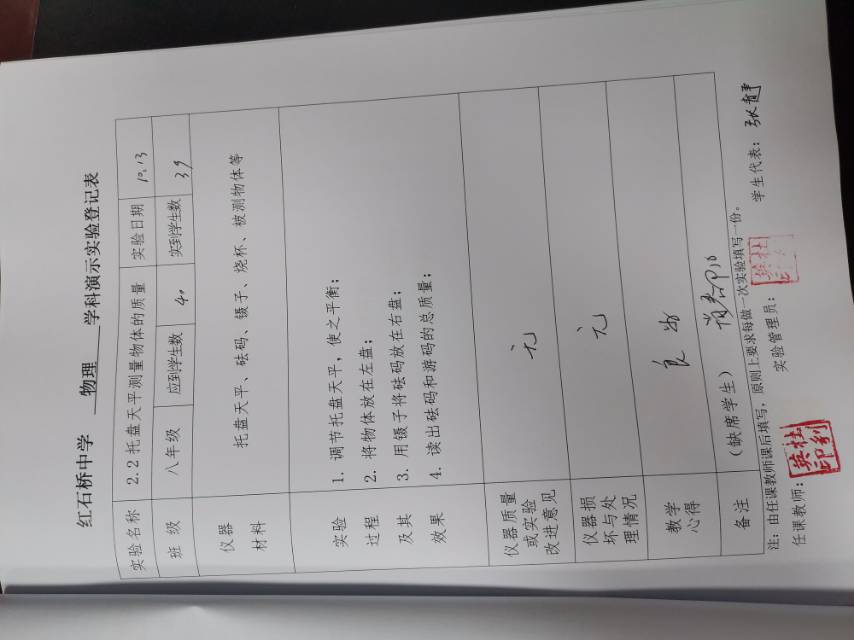 红石桥中学 物理 学科演示实验登记表
实验名称 2.2托盘天平测量物体的质量 实验日期 10.13
班 级 八年级 应到学生数 40 实到学生数 39
仪器
材料
托盘天平、砝码、镊子、烧杯、被测物体等
实验
过程
及其
效果
1. 调节托盘天平，使之平衡；
2. 将物体放在左盘；
3. 用镊子将砝码放在右盘；
4. 读出砝码和游码的总质量；
仪器质量
或实验
改进意见
无
仪器损
坏与处
理情况
无
教学
心得
良好
备注 （缺席学生）
注：由任课教师课后填写，原则上要求每做一次实验填写一份。
任课教师： 英社印利 实验管理员： 英社 学生代表： 张